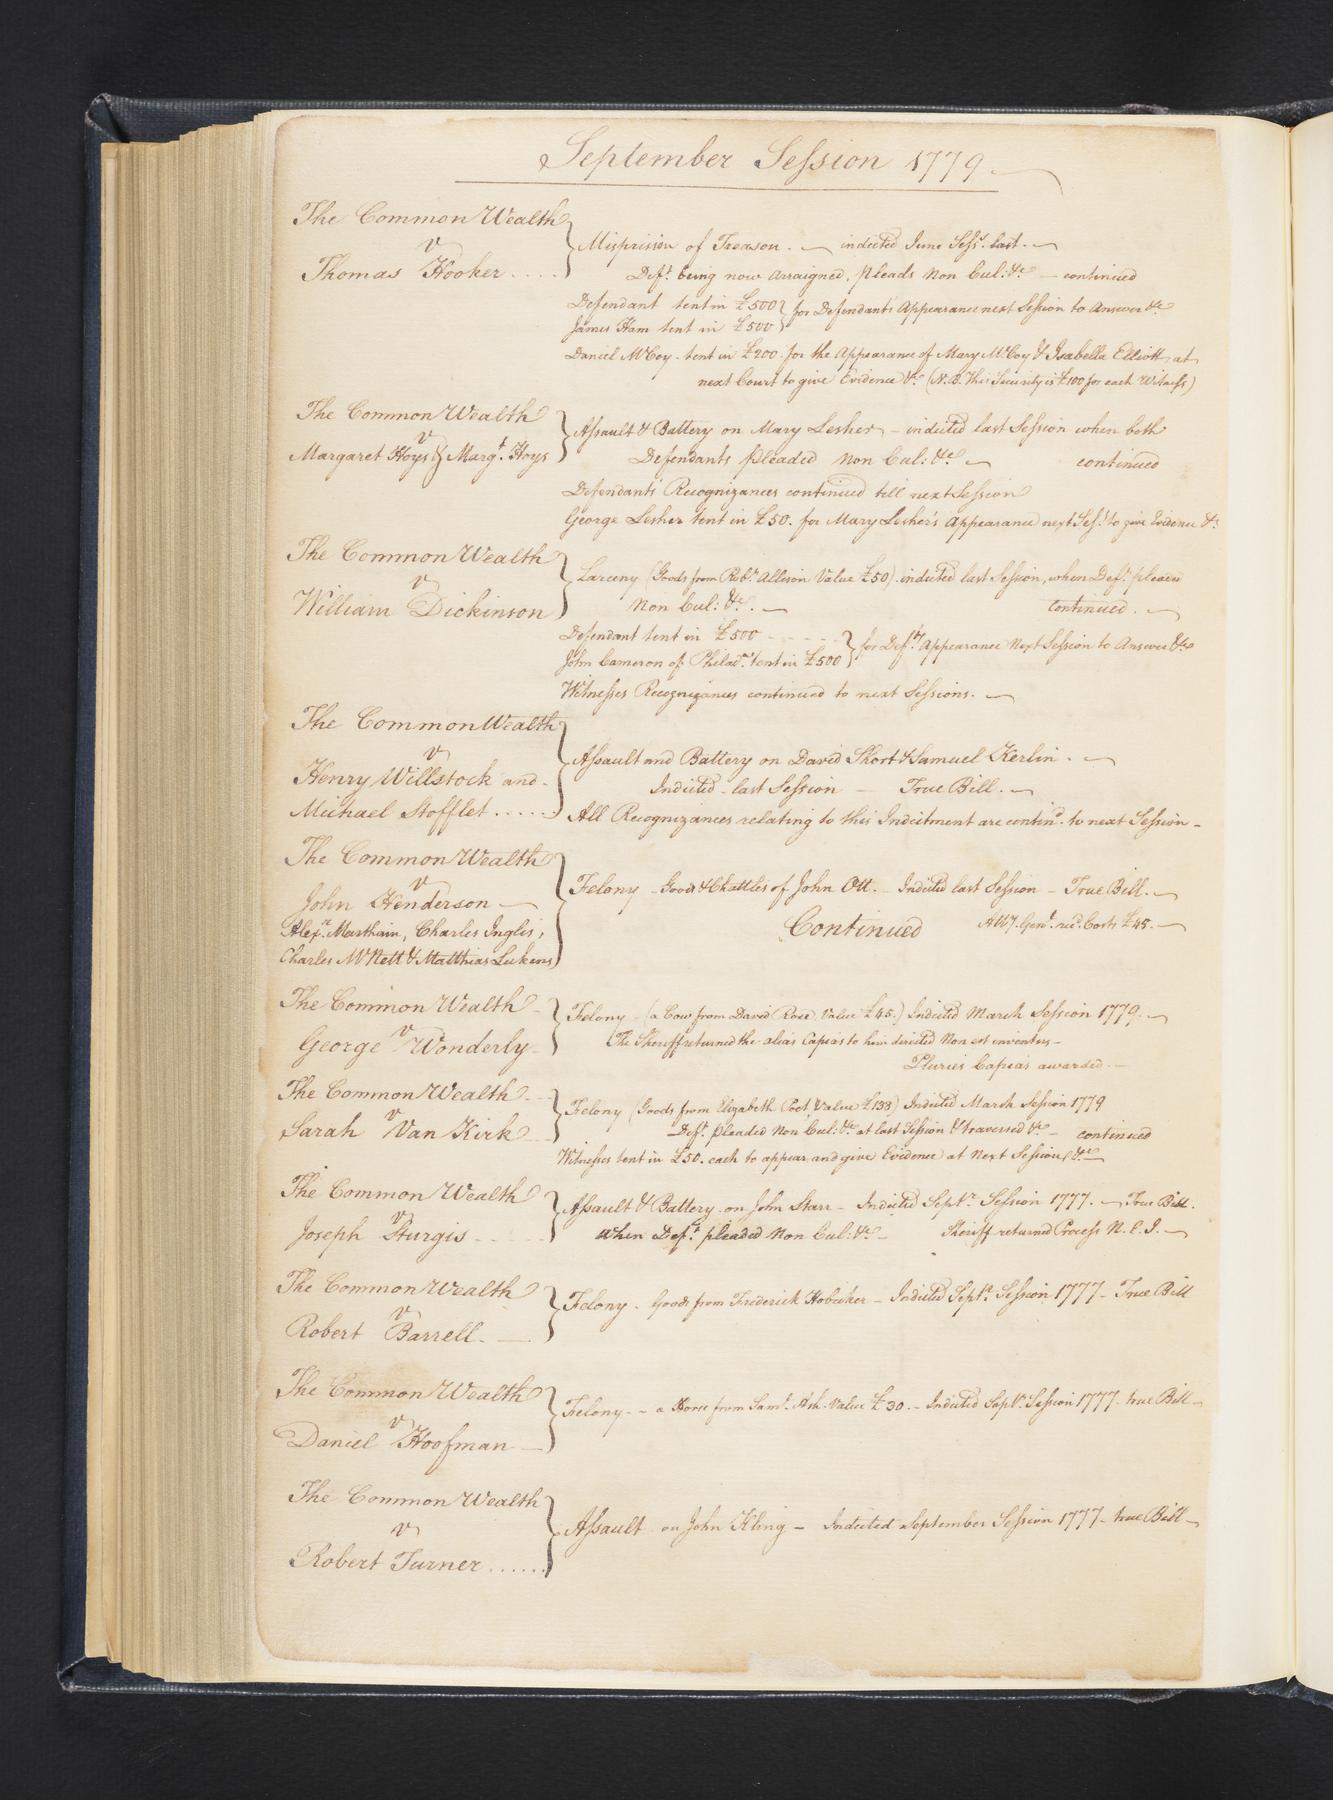 September Session 1779
The Common Wealth
v
Thomas Hooker....
Misprision of Treason. indicted June Sess. last.
Deft. being now arraigned, pleads Non Cul: &c — continued
Defendant tent in £500 } for Defendants Appearance next Session to Answer &c
James Ham tent in £500
Daniel McCoy tent in £200 for the Appearance of Mary McCoy & Isabella Elliott at
next Court to give Evidence &c (N.B. This Security is £100 for each Witness)
The Common Wealth
v
Margaret Hoys & Margt. Hoys
Assault & Battery on Mary Lesher — indicted last Session when both
Defendants pleaded Non Cul: &c — continued
Defendants Recognizances continued till next Session
George Lesher tent in £50. for Mary Lesher's Appearance next Sess. to give Evidence &c
The Common Wealth
v
William Dickinson
Larceny (Goods from Robt. Allison Value £50) indicted last Session, when Deft. pleaded
Non Cul: &c. — continued.
Defendant tent in £500 - - - - - } for Defts. Appearance Next Session to Answer &c
John Cameron of Philada. tent in £500
Witnesses Recognizances continued to next Sessions.
The Common Wealth
v
Henry Willstock and
Michael Stofflet.....
Assault and Battery on David Short & Samuel Kerlin.
Indicted last Session — True Bill.
All Recognizances relating to this Indictment are contind. to next Session -
The Common Wealth
v
John Henderson
Alexr. Marthain, Charles Inglis,
Charles McNett & Matthias Lukens
Felony - Goods & Chattles of John Ott. - Indicted last Session - True Bill.
Continued Atty. Genl. recd. Costs £45.
The Common Wealth
v
George Wonderly
Felony - (a Cow from David Rose, Value £45.) Indicted March Session 1779.
The Sheriff returned the alias Capias to him directed Non est inventus -
Pluries Capias awarded.
The Common Wealth
v
Sarah Van Kirk
Felony (Goods from Elizabeth Poet, Value £133) Indicted March Session 1779
Deft. pleaded Non Cul: &c at last Session & traversed &c - continued
Witnesses tent in £50. each to appear and give Evidence at Next Session, &c
The Common Wealth
v
Joseph Sturgis
Assault & Battery on John Starr - Indicted Septr. Session 1777. - True Bill.
When Deft. pleaded Non Cul: &c - Sheriff returned Process N. E. I.
The Common Wealth
v
Robert Barrell.
Felony. Goods from Frederick Hobecker - Indicted Septr. Session 1777 - True Bill
The Common Wealth
v
Daniel Hoofman
Felony - a Horse from Saml. Ash. Value £30. - Indicted Septr. Session 1777 - true Bill
The Common Wealth
v
Robert Turner......
Assault on John Kling - Indicted September Session 1777 - true Bill